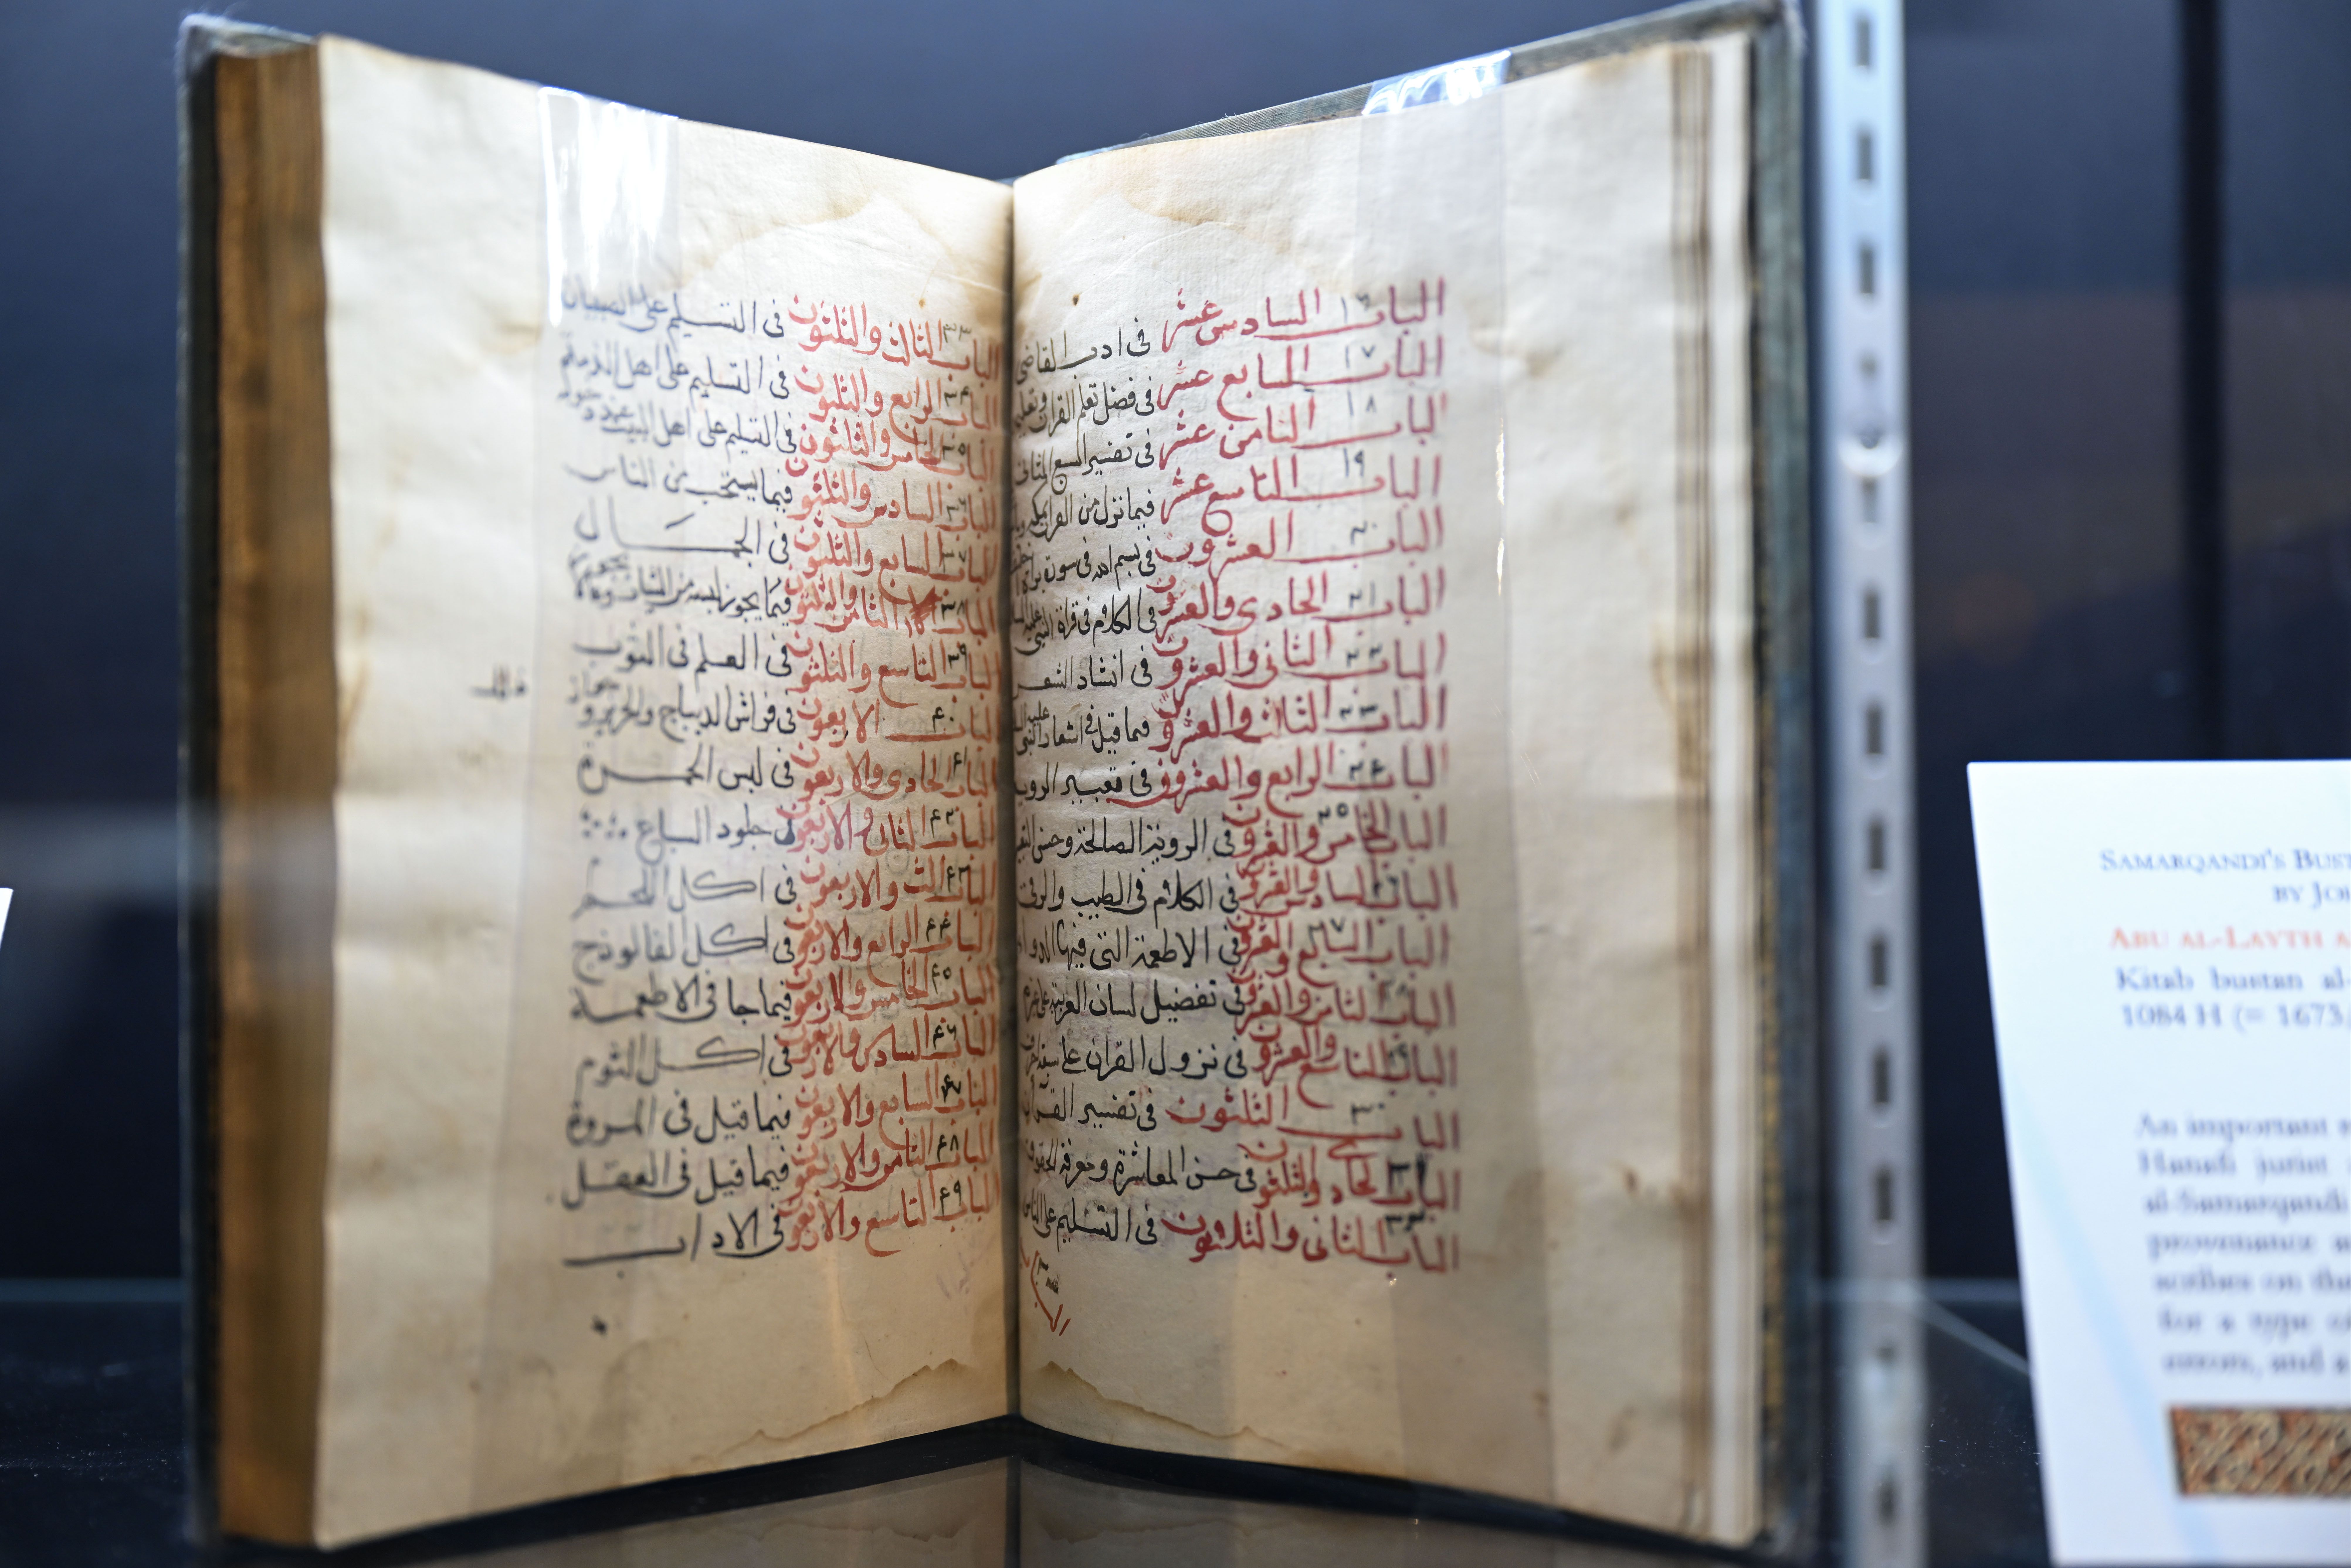 الباب السادس عشر ١٦ فى ادب القاضى
الباب السابع عشر ١٧ فى فضل تعلم القران وتعليم
الباب الثامن عشر ١٨ فى تفسير السبع المثانى
الباب التاسع عشر ١٩ فيما نزل من القران
الباب العشرون ٢٠ فى بسم الله فى سورة براة
الباب الحادى والعشرون ٢١ فى الكلام فى قراة النبى عليه
الباب الثانى والعشرون ٢٢ فى انشاد الشعر
الباب الثالث والعشرون ٢٣ فيما قيل فى اشعار النبى عليه
الباب الرابع والعشرون ٢٤ فى تعبير الرويا
الباب الخامس والعشرون ٢٥ فى الروية الصالحة وحسن
الباب السادس والعشرون فى الكلام فى الطب والرقى
الباب السابع والعشرون ٢٧ فى الاطعمة التى فيها الدواء
الباب الثامن والعشرون فى تفضيل لسان العربية على
الباب التاسع والعشرون فى نزول القران على سبعة
الباب الثلثون ٣٠ فى تفسير القران
الباب الحادى والثلثون ٣١ فى حسن المعاشرة ومعرفة الحقوق
الباب الثانى والثلاثون ٣٢ فى التسليم على الناس
الباب
الباب الثالث والثلثون ٣٣ فى التسليم على الصبيان
الباب الرابع والثلثون ٣٤ فى التسليم على اهل الذمة
الباب الخامس والثلثون ٣٥ فى التسليم على اهل البيت عند دخوله
الباب السادس والثلثون ٣٦ فيما يستحب من الناس
الباب السابع والثلثون ٣٧ فى الجمال
الباب الثامن والثلثون ٣٨ فيما يجوز لبسه من الثياب
الباب التاسع والثلثون ٣٩ فى العلم فى الثوب
الباب الاربعون ٤٠ فى فراش الديباج والحرير
الباب الحادى والاربعون ٤١ فى لبس الحمرة
الباب الثانى والاربعون ٤٢ فى جلود السباع
الباب الثالث والاربعون ٤٣ فى اكل اللحم
الباب الرابع والاربعون ٤٤ فى اكل الفالوذج
الباب الخامس والاربعون ٤٥ فيما جا فى الاطعمة
الباب السادس والاربعون ٤٦ فى اكل الثوم
الباب السابع والاربعون ٤٧ فيما قيل فى المروة
الباب الثامن والاربعون ٤٨ فيما قيل فى العقل
الباب التاسع والاربعون ٤٩ فى الاداب
SAMARQANDI'S
BY
ABU AL-LAYTH
Kitab bustan al-
1084 H (= 1673
An important
Hanafi jurist
al-Samarqandi
provenance
scribes on
for a type
errors, and a